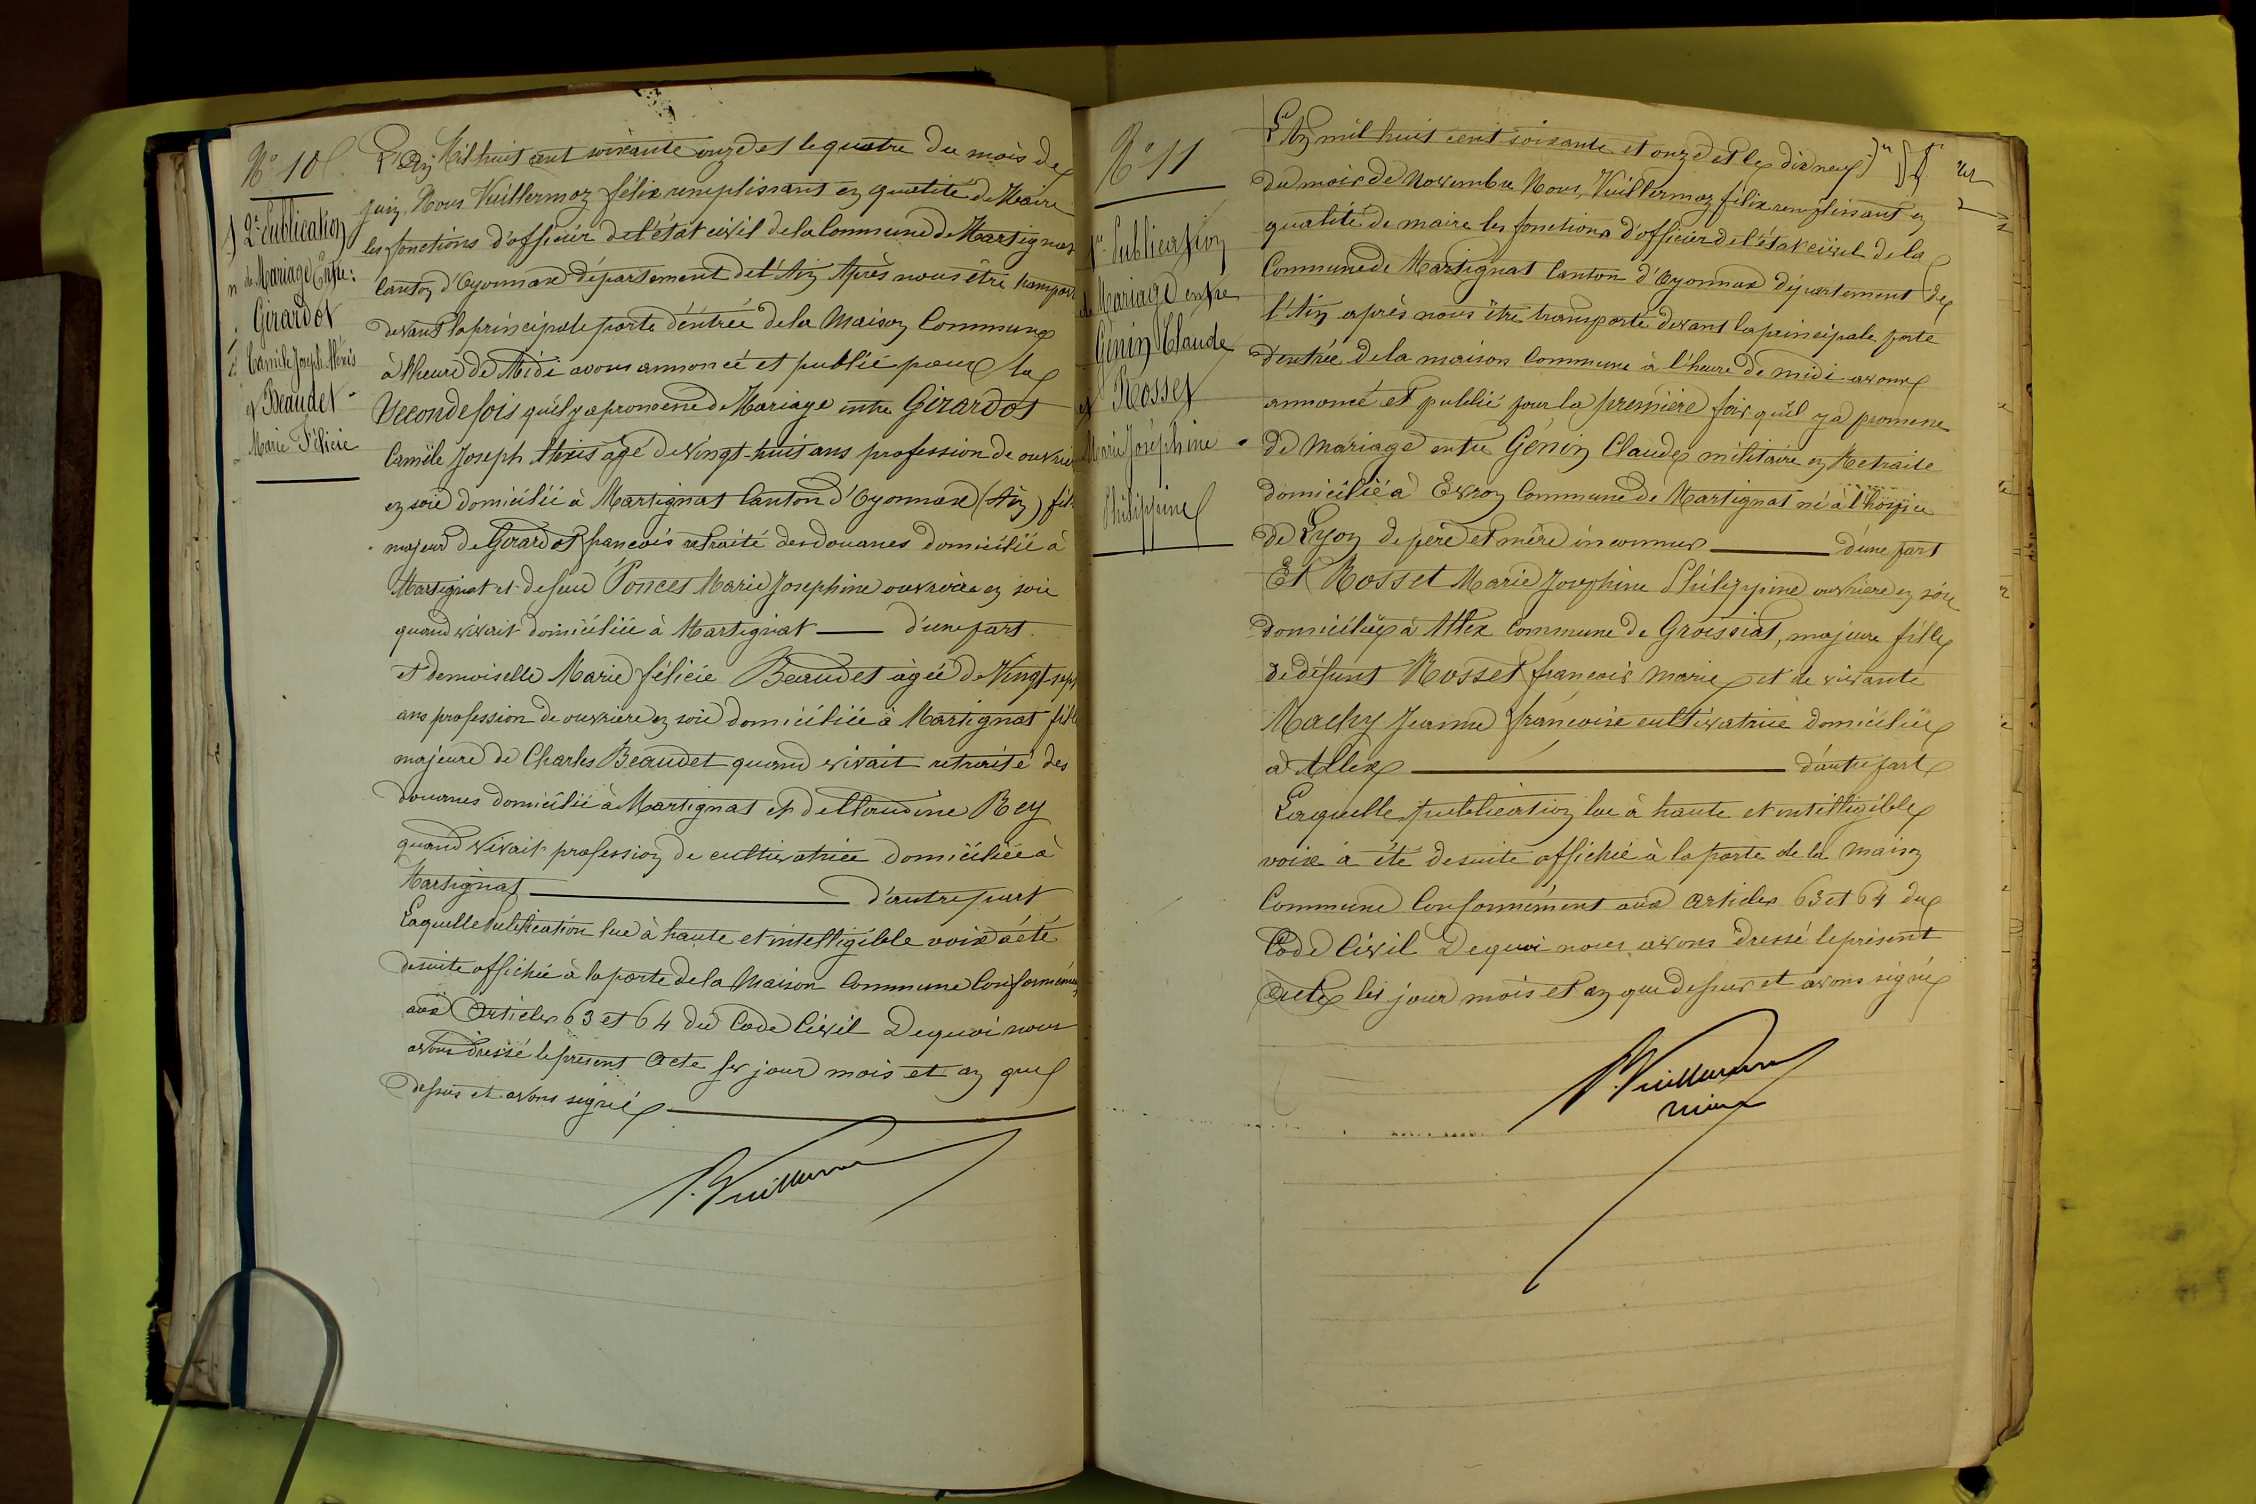 N° 10
2e Publication
de Mariage Entre:
Girardot
Camile Joseph Alexis
et Beaudet
Marie Félicie
L'an Mil huit cent soixante onze et le quatre du mois de
juin. Nous Vuillermoz félix remplissant en qualité de Maire
les fonctions d'officier de l'état civil de la Commune de Martignat
Canton d'Oyonnax département de l'Ain Après nous être transporté
devant la principale porte d'éntrée de la Maison Commune
à l'heure de Midi avons annoncé et publié pour la
Seconde fois qu'il y a promesse de Mariage entre Girardot
Camile Joseph Alexis agé de vingt-huit ans profession de ouvrier
en soie domicilié à Martignat Canton d'Oyonnax (Ain) fils
majeur de Girardot francois retraité des douanes domicilié à
Martignat et de feue Poncet Marie Josephine ouvrière en soie
quand vivait domiciliée à Martignat — d'une part.
et demoiselle Marie félicie Beaudet agée de Vingt-sept
ans profession de ouvriere en soie domiciliée à Martignat fille
majeure de Charles Beaudet quand vivait retraité des
douanes domicilié à Martignat et de Claudine Rey
quand vivait profession de cultivatrice domiciliée à
Martignat — d'autre part
Laquelle Publication lue à haute et intelligible voix a été
de suite affichée à la porte de la Maison Commune Conformément
aux Articles 63 et 64 du Code Civil De quoi nous
avons dressé le présent Acte les jour mois et an que
dessus et avons signé
F. Vuillermoz
N° 11
1re Publication
de Mariage entre
Génin Claude
et Rosset
Marie Joséphine
Philippine
L'An mil huit cent soixante et onze et le dix neuf
du mois de Novembre Nous, Vuillermoz félix remplissant en
qualité de maire les fonctions d'officier de l'état civil de la
Commune de Martignat Canton d'Oyonnax département de
l'Ain après nous être transporté devant la principale porte
d'entrée de la maison Commune à l'heure de midi avons
annoncé et publié pour la première fois qu'il y a promesse
de mariage entre Génin Claude militaire en Retraite
domicilié à Evron Commune de Martignat né à l'hospice
de Lyon de père et mère inconnus — d'une part
Et Rosset Marie Josephine Philippine ouvrière en soie
domiciliée à Allex commune de Groissiat, majeure fille
de défunt Rosset francois Marie et de vivante
Machy Jeanne francoise cultivatrice domiciliée
à Allex — d'autre part
Laquelle publication lue à haute et intelligible
voix a été de suite affichée à la porte de la Maison
Commune Conformément aux Articles 63 et 64 du
Code Civil De quoi nous avons dressé le présent
acte les jour mois et an que dessus et avons signé
F. Vuillermoz
maire